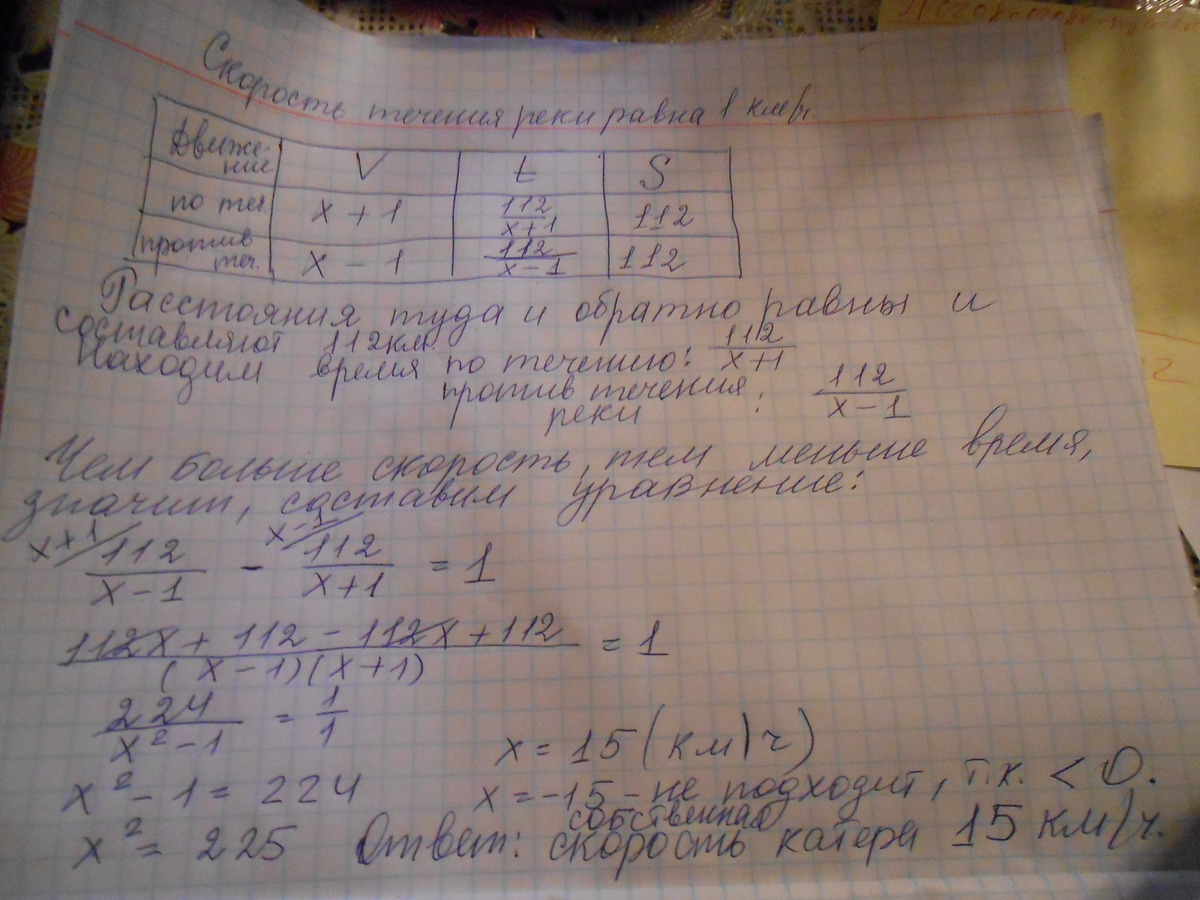 Скорость течения реки равна 1 км/ч.
Движе-
ние V t S
по теч. x + 1 112/x+1 112
против
теч. x - 1 112/x-1 112
Расстояния туда и обратно равны и
составляют 112 км.
Находим время по течению: 112/x+1
против течения
реки : 112/x-1
Чем больше скорость, тем меньше время,
значит, составим уравнение:
x+1/ 112/x-1 - x-1/ 112/x+1 = 1
112x + 112 - 112x + 112/(x-1)(x+1) = 1
224/x²-1 = 1/1
x = 15 (км/ч)
x² - 1 = 224
x = -15 - не подходит, т.к. < 0.
x² = 225
Ответ: собственная
скорость катера 15 км/ч.